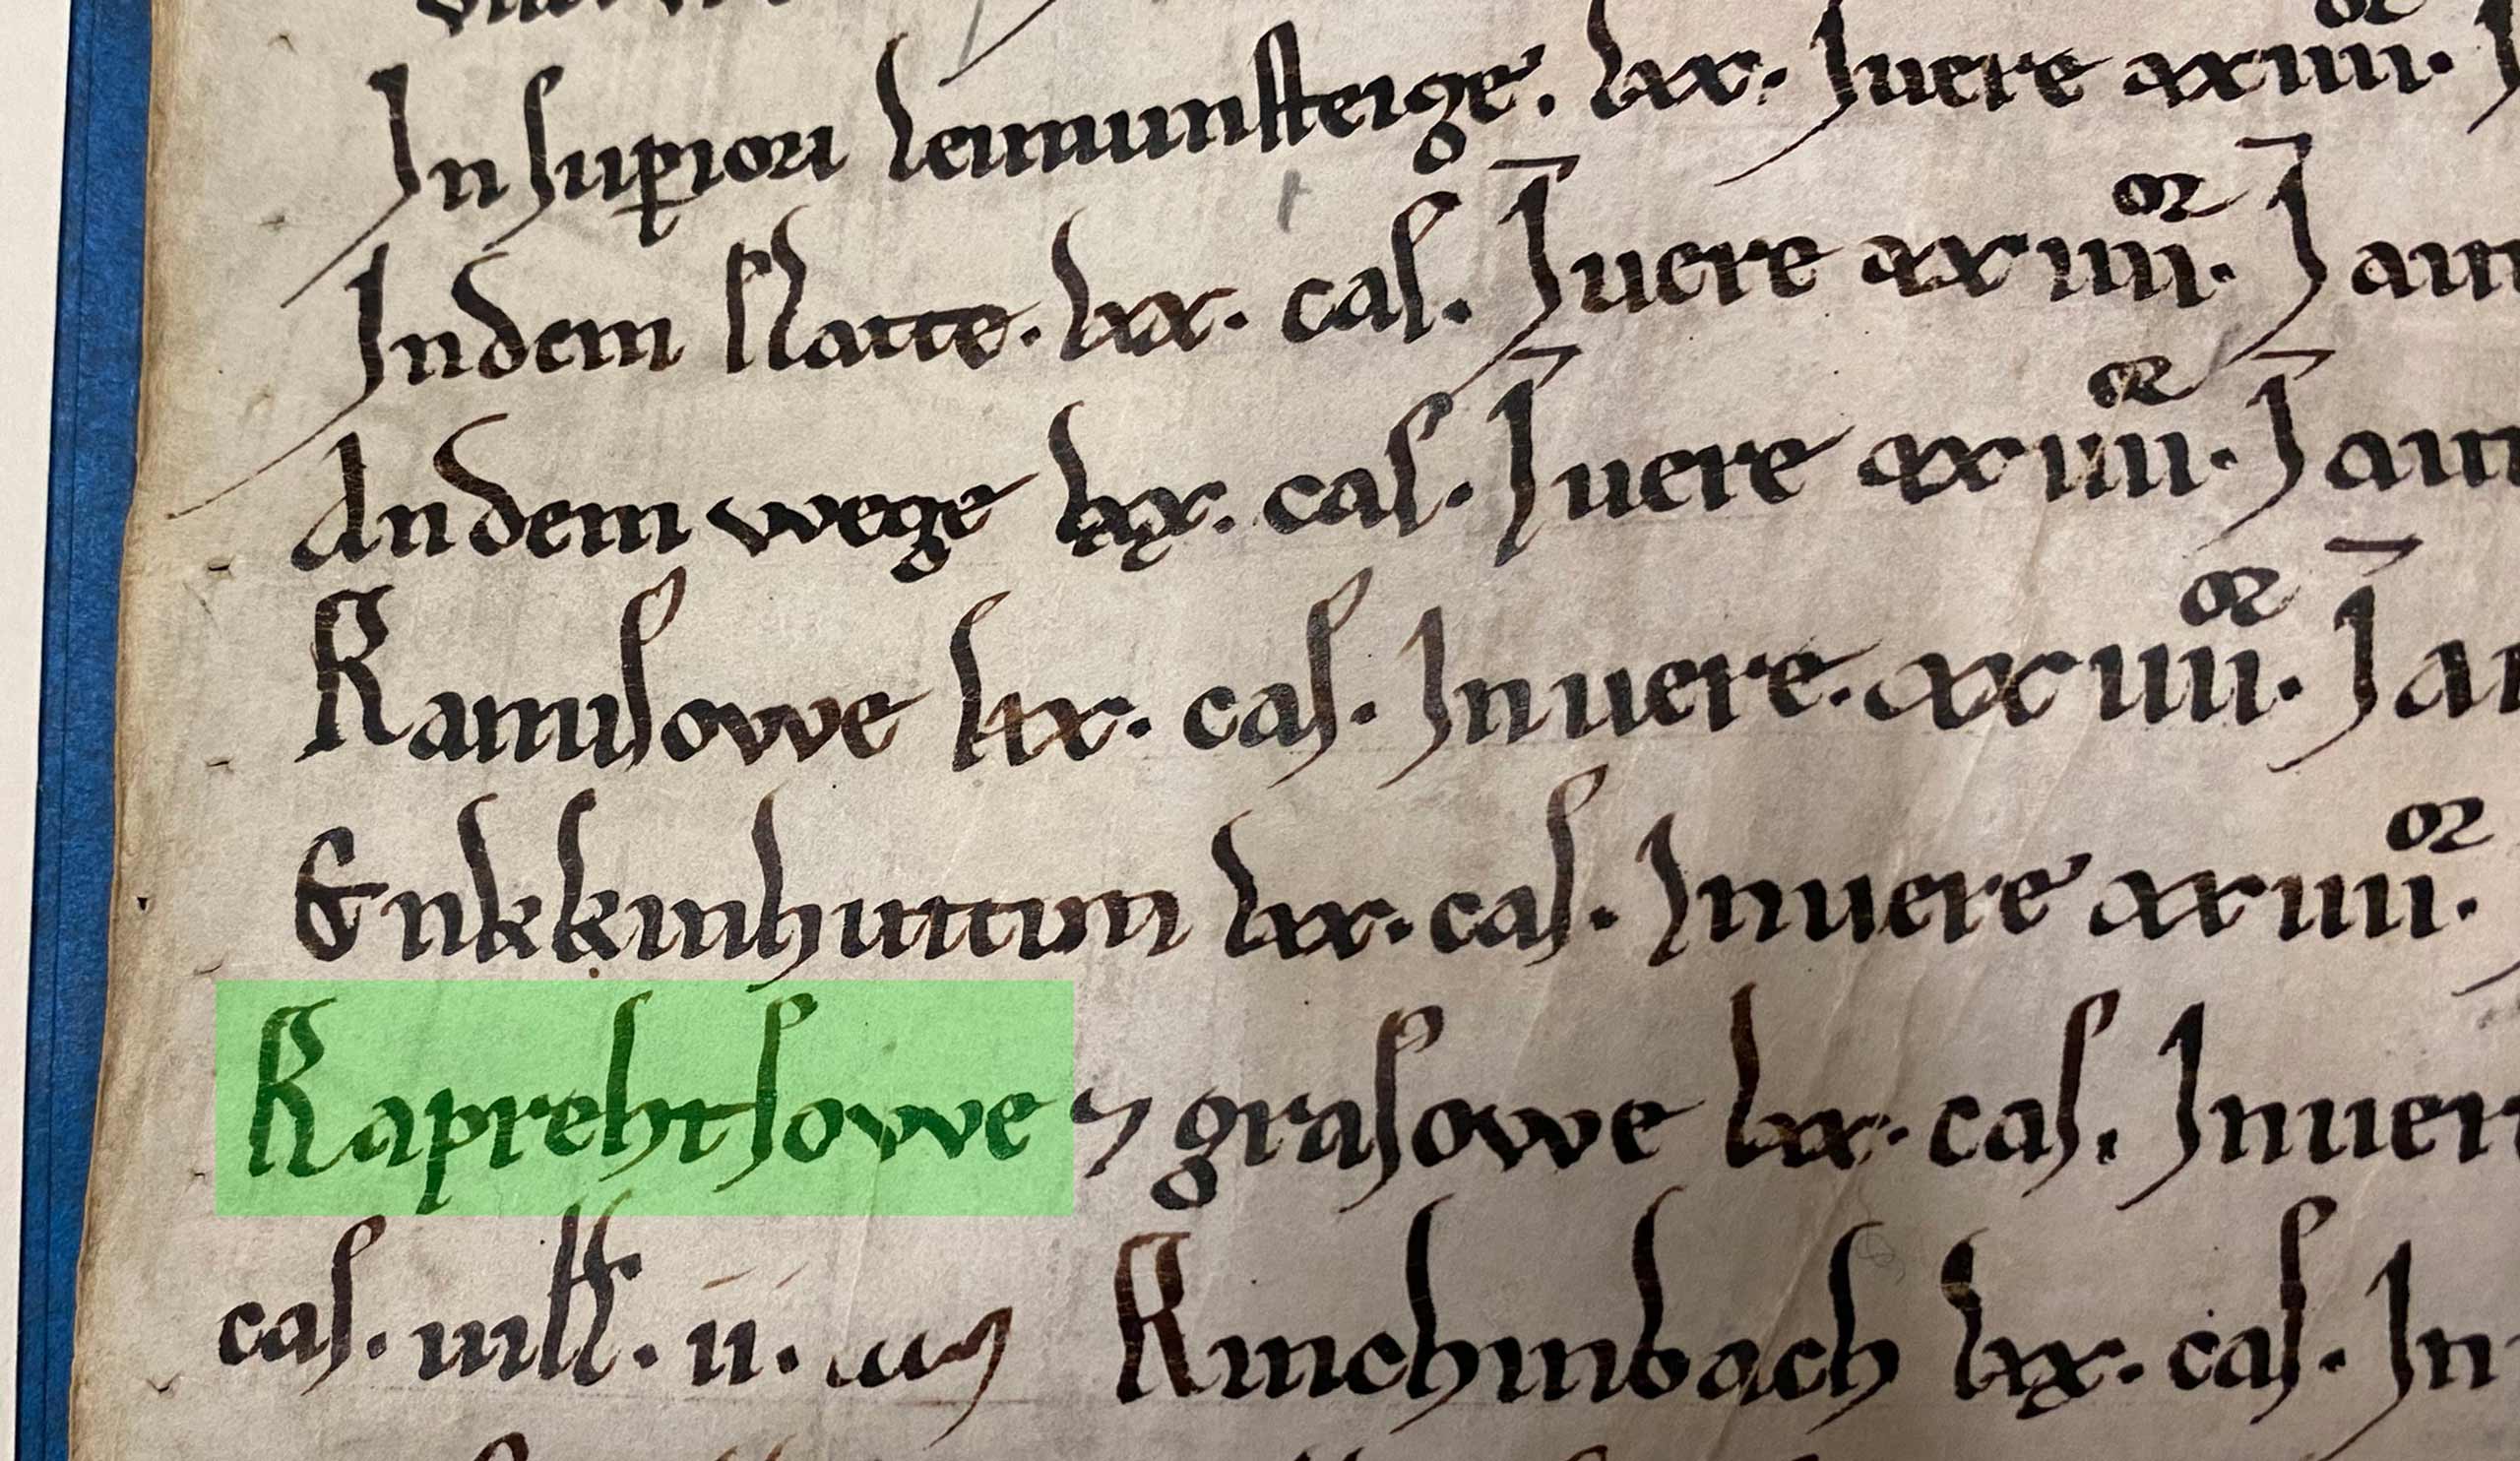 In supiori leimunsteige. lxx. Inuere xxiiii.
Indem slatte. lxx. cas. Iuere xxiiii. I aut
Andem wege lxx. cas. Iuere xxiiii. I aut
Ramisowe lxx. cas. Inuere. xxiiii. I au
Enkkinhuttun lxx. cas. Inuere xxiiii.
Raprehtsowe ⁊ grasowe lxx. cas. Inuer
cas. uill. ii. Rinchinbach lxx. cas. In